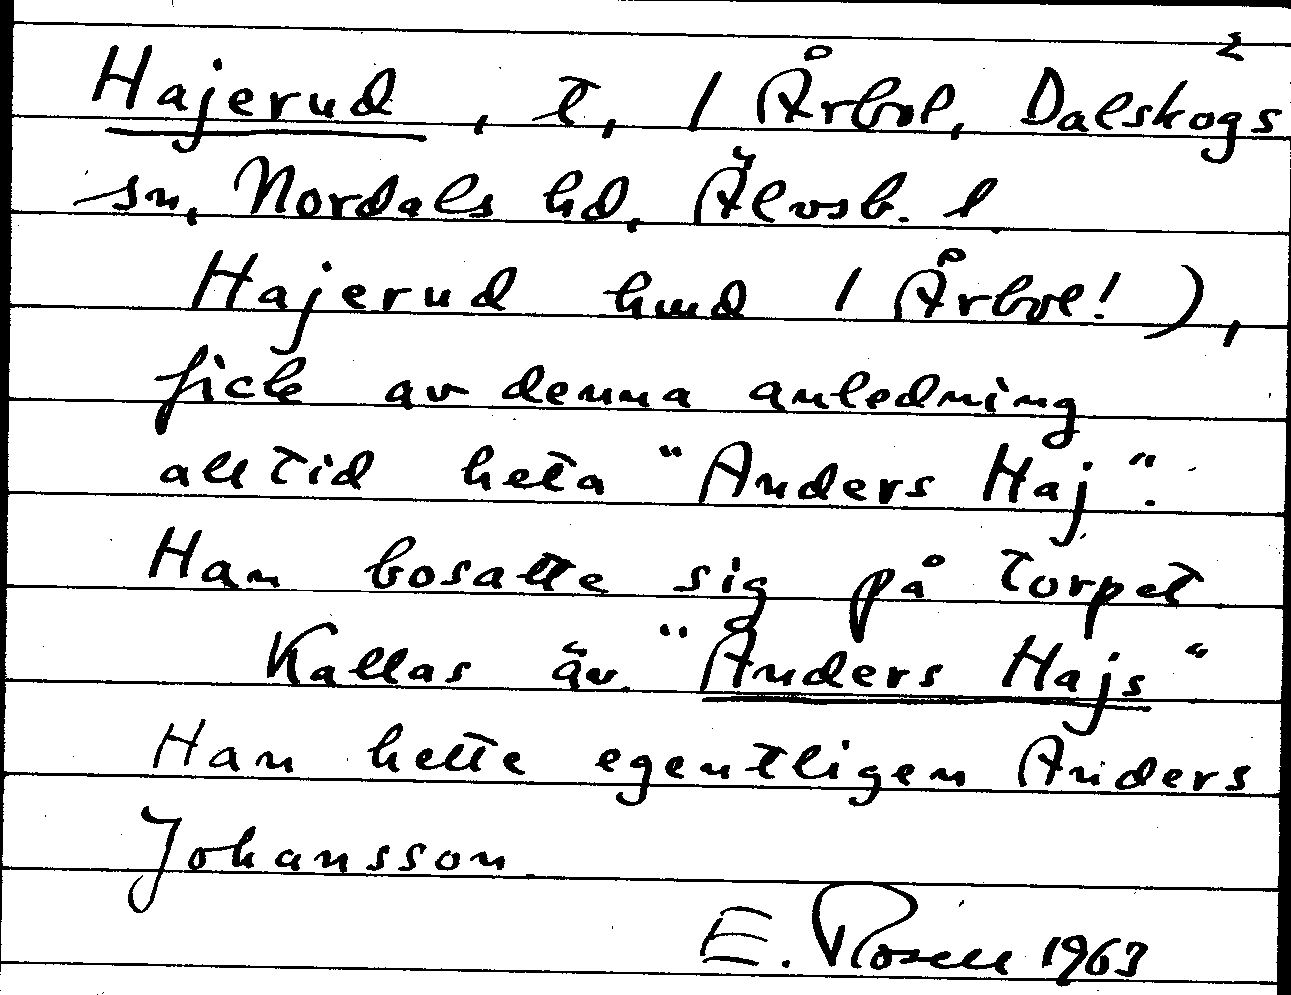 2
Hajerud, t, / Årbol, Dalskogs
sn, Nordals hd, Älvsb. l.
Hajerud hmd / Årbol!),
fick av denna anledning
alltid heta "Anders Haj".
Han bosatte sig på torpet
Kallas äv. "Anders Hajs"
Han hette egentligen Anders
Johansson
E. Rosell 1963